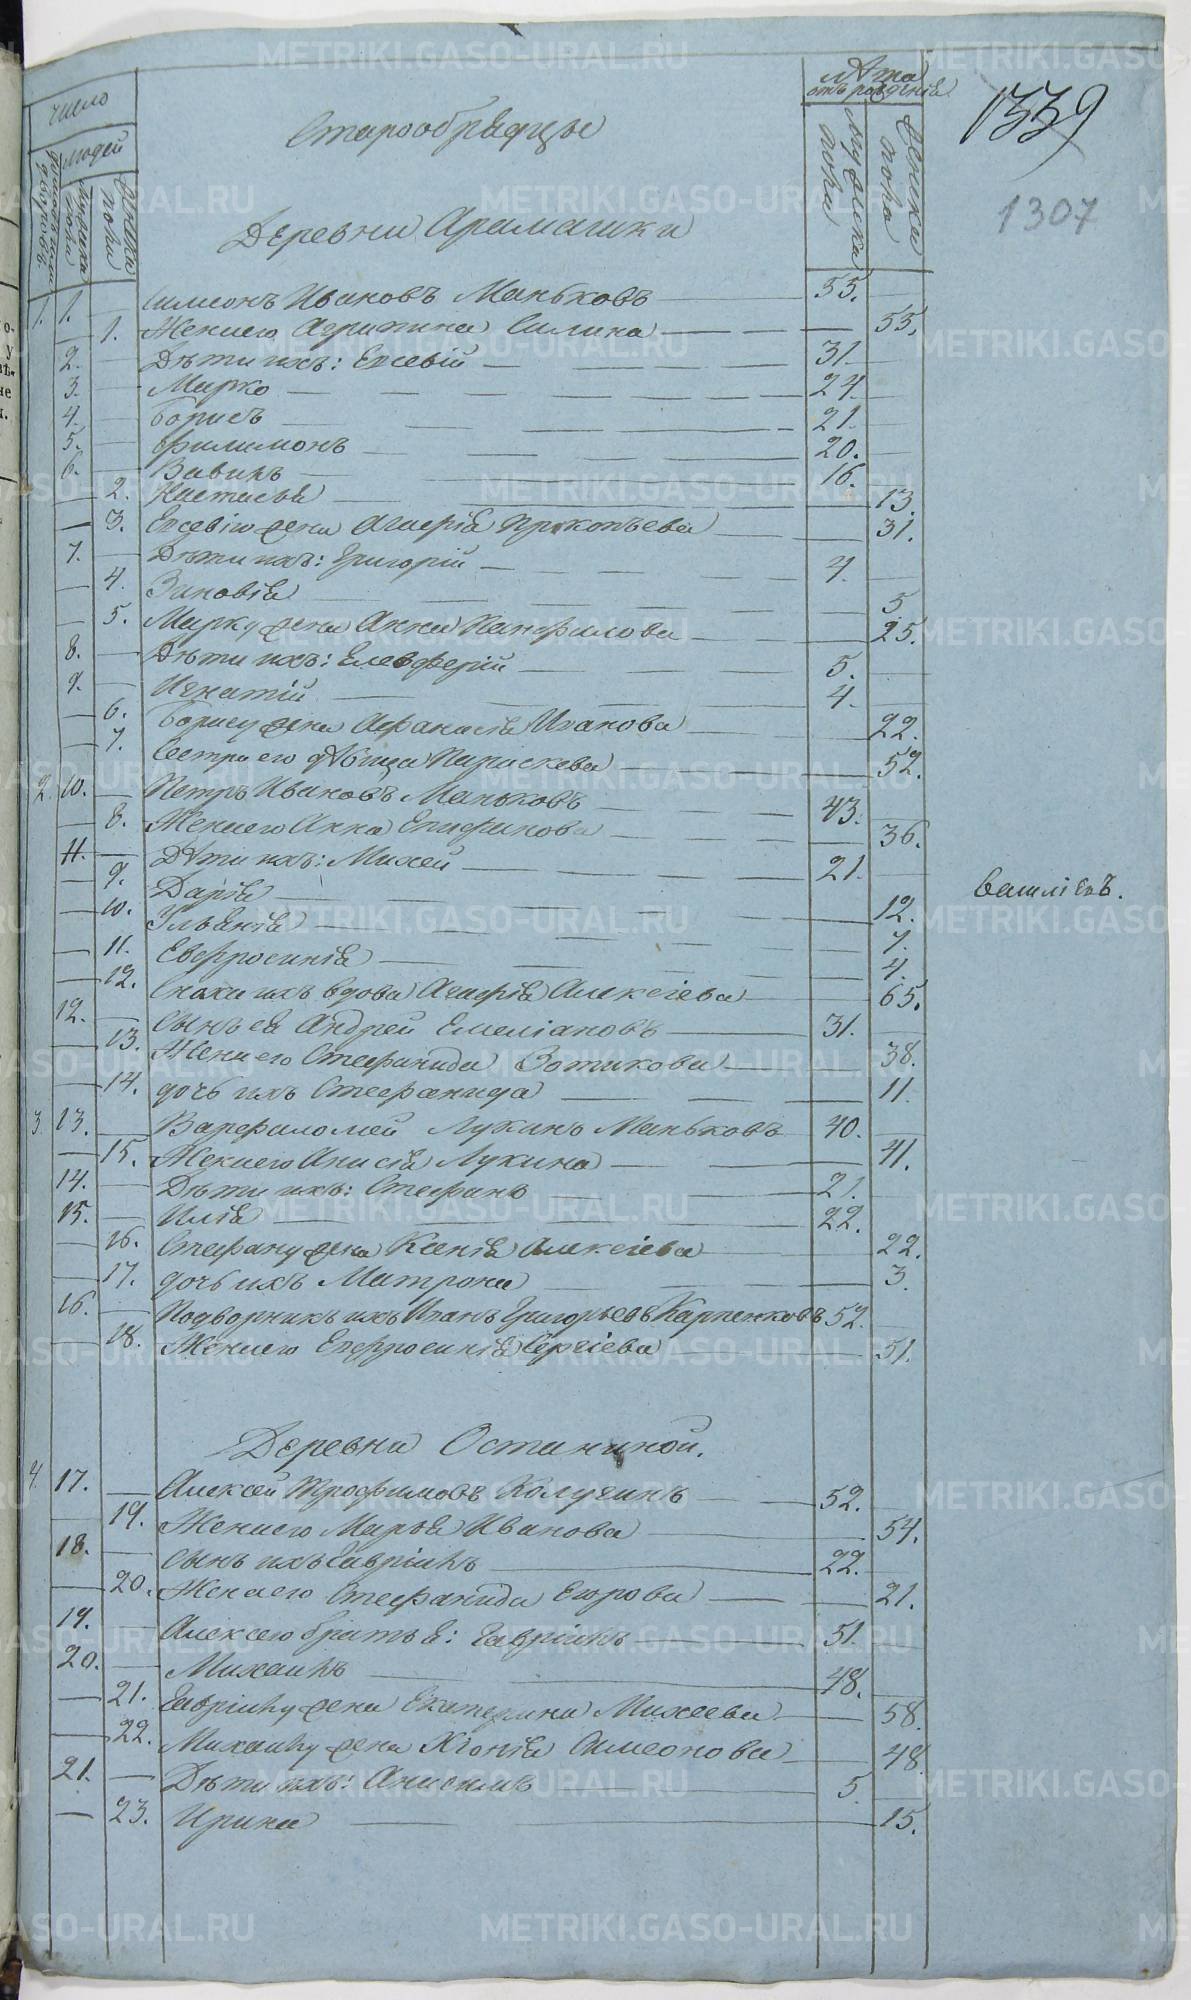 число
людей
мужеска пола
женска пола
Лѣта
отъ рожденія
мужеска пола
женска пола
1339
1307
Старообрядцы
Деревни Арамашки
1. 1. — Симеонъ Ивановъ Маньковъ — 55. —
— 1. Жена его Агрипина Силина — — 55.
2. — Дѣти ихъ: Евсевій — 31. —
3. — Марко — 24. —
4. — Борисъ — 21. —
5. — Филимонъ — 20. —
6. — Вавилъ — 16. —
— 2. Настасья — — 13.
— 3. Евсевію жена Агафія Прокопьева — — 31.
7. — Дѣти ихъ: Григорій — 7. —
— 4. Зиновія — — 5
— 5. Марку жена Анна Панфилова — — 25.
8. — Дѣти ихъ: Елевферій — 5. —
9. — Игнатій — 4. —
— 6. Борису жена Афанасія Иванова — — 22.
— 7. Сестра его дѣвица Параскева — — 52.
2. 10. — Петръ Ивановъ Маньковъ — 43. —
— 8. Жена его Анна Епифанова — — 36.
11. — Дѣти ихъ: Михей — 21. —
вашліевъ.
— 9. Дарія — — 12.
— 10. Ульянія — — 7.
— 11. Евфросинія — — 4.
— 12. Сноха ихъ вдова Агафія Алексіева — — 65.
12. — Сынъ ея Андрей Емеліановъ — 31. —
— 13. Жена его Стефанида Зотикова — — 38.
— 14. дочь ихъ Стефанида — — 11.
3. 13. — Варфоломей Лукинъ Маньковъ 40. —
— 15. Жена его Анисія Лукина — — 41.
14. — Дѣти ихъ: Стефанъ — 21. —
15. — Илія — 22. —
— 16. Стефану жена Ксенія Алексіева — — 22.
— 17. дочь ихъ Матрона — — 3.
16. — Подворникъ ихъ Иванъ Григорьевъ Карпенковъ 52. —
— 18. Жена его Евфросинія Сергіева — — 51.
Деревни Останиной.
4. 17. — Алексей Трофимовъ Колугинъ — 52. —
— 19. Жена его Марья Иванова — — 54.
18. — Сынъ ихъ Гавріилъ — 22. —
— 20. Жена его Стефанида Егорова — — 21.
19. — Алексею братья: Гавріилъ — 51. —
20. — Михаилъ — 48. —
— 21. Гавріилу жена Екатерина Михеева — — 58.
— 22. Михаилу жена Хіонія Симеонова — — 48.
21. — Дѣти ихъ: Анисимъ — 5. —
— 23. Ирина — — 15.